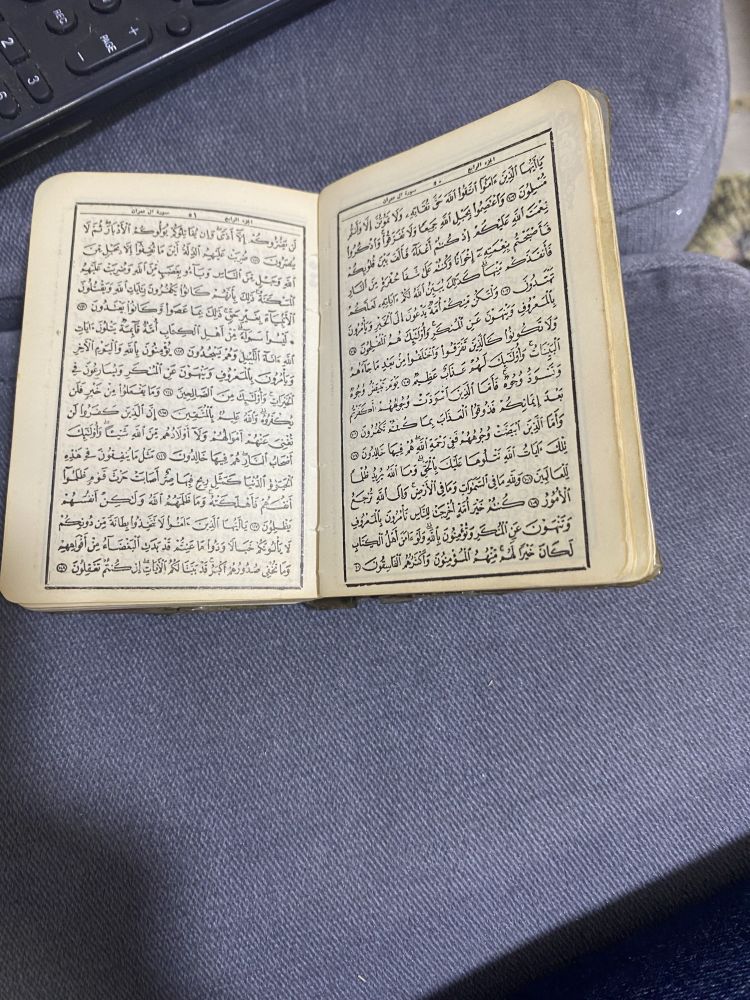 الجزء الرابع ٥٠ سورة آل عمران
يَاأَيُّهَا الَّذِينَ ءَامَنُوا اتَّقُوا اللَّهَ حَقَّ تُقَاتِهِ وَلَا تَمُوتُنَّ إِلَّا وَأَنْتُمْ
مُسْلِمُونَ ١٠٢ وَاعْتَصِمُوا بِحَبْلِ اللَّهِ جَمِيعًا وَلَا تَفَرَّقُوا وَاذْكُرُوا
نِعْمَتَ اللَّهِ عَلَيْكُمْ إِذْ كُنْتُمْ أَعْدَاءً فَأَلَّفَ بَيْنَ قُلُوبِكُمْ
فَأَصْبَحْتُمْ بِنِعْمَتِهِ إِخْوَانًا وَكُنْتُمْ عَلَى شَفَا حُفْرَةٍ مِنَ النَّارِ
فَأَنْقَذَكُمْ مِنْهَا كَذَلِكَ يُبَيِّنُ اللَّهُ لَكُمْ ءَايَاتِهِ لَعَلَّكُمْ
تَهْتَدُونَ ١٠٣ وَلْتَكُنْ مِنْكُمْ أُمَّةٌ يَدْعُونَ إِلَى الْخَيْرِ وَيَأْمُرُونَ
بِالْمَعْرُوفِ وَيَنْهَوْنَ عَنِ الْمُنْكَرِ وَأُولَئِكَ هُمُ الْمُفْلِحُونَ ١٠٤
وَلَا تَكُونُوا كَالَّذِينَ تَفَرَّقُوا وَاخْتَلَفُوا مِنْ بَعْدِ مَا جَاءَهُمُ
الْبَيِّنَاتُ وَأُولَئِكَ لَهُمْ عَذَابٌ عَظِيمٌ ١٠٥ يَوْمَ تَبْيَضُّ وُجُوهٌ
وَتَسْوَدُّ وُجُوهٌ فَأَمَّا الَّذِينَ اسْوَدَّتْ وُجُوهُهُمْ أَكَفَرْتُمْ
بَعْدَ إِيمَانِكُمْ فَذُوقُوا الْعَذَابَ بِمَا كُنْتُمْ تَكْفُرُونَ ١٠٦
وَأَمَّا الَّذِينَ ابْيَضَّتْ وُجُوهُهُمْ فَفِي رَحْمَةِ اللَّهِ هُمْ فِيهَا خَالِدُونَ ١٠٧
تِلْكَ ءَايَاتُ اللَّهِ نَتْلُوهَا عَلَيْكَ بِالْحَقِّ وَمَا اللَّهُ يُرِيدُ ظُلْمًا
لِلْعَالَمِينَ ١٠٨ وَلِلَّهِ مَا فِي السَّمَوَاتِ وَمَا فِي الْأَرْضِ وَإِلَى اللَّهِ تُرْجَعُ
الْأُمُورُ ١٠٩ كُنْتُمْ خَيْرَ أُمَّةٍ أُخْرِجَتْ لِلنَّاسِ تَأْمُرُونَ بِالْمَعْرُوفِ
وَتَنْهَوْنَ عَنِ الْمُنْكَرِ وَتُؤْمِنُونَ بِاللَّهِ وَلَوْ ءَامَنَ أَهْلُ الْكِتَابِ
لَكَانَ خَيْرًا لَهُمْ مِنْهُمُ الْمُؤْمِنُونَ وَأَكْثَرُهُمُ الْفَاسِقُونَ ١١٠
الجزء الرابع ٥١ سورة آل عمران
لَنْ يَضُرُّوكُمْ إِلَّا أَذًى وَإِنْ يُقَاتِلُوكُمْ يُوَلُّوكُمُ الْأَدْبَارَ ثُمَّ لَا
يُنْصَرُونَ ١١١ ضُرِبَتْ عَلَيْهِمُ الذِّلَّةُ أَيْنَ مَا ثُقِفُوا إِلَّا بِحَبْلٍ مِنَ
اللَّهِ وَحَبْلٍ مِنَ النَّاسِ وَبَاءُو بِغَضَبٍ مِنَ اللَّهِ وَضُرِبَتْ عَلَيْهِمُ
الْمَسْكَنَةُ ذَلِكَ بِأَنَّهُمْ كَانُوا يَكْفُرُونَ بِآيَاتِ اللَّهِ وَيَقْتُلُونَ
الْأَنْبِيَاءَ بِغَيْرِ حَقٍّ ذَلِكَ بِمَا عَصَوْا وَكَانُوا يَعْتَدُونَ ١١٢
لَيْسُوا سَوَاءً مِنْ أَهْلِ الْكِتَابِ أُمَّةٌ قَائِمَةٌ يَتْلُونَ ءَايَاتِ
اللَّهِ ءَانَاءَ اللَّيْلِ وَهُمْ يَسْجُدُونَ ١١٣ يُؤْمِنُونَ بِاللَّهِ وَالْيَوْمِ الْآخِرِ
وَيَأْمُرُونَ بِالْمَعْرُوفِ وَيَنْهَوْنَ عَنِ الْمُنْكَرِ وَيُسَارِعُونَ فِي
الْخَيْرَاتِ وَأُولَئِكَ مِنَ الصَّالِحِينَ ١١٤ وَمَا يَفْعَلُوا مِنْ خَيْرٍ فَلَنْ
يُكْفَرُوهُ وَاللَّهُ عَلِيمٌ بِالْمُتَّقِينَ ١١٥ إِنَّ الَّذِينَ كَفَرُوا لَنْ
تُغْنِيَ عَنْهُمْ أَمْوَالُهُمْ وَلَا أَوْلَادُهُمْ مِنَ اللَّهِ شَيْئًا وَأُولَئِكَ
أَصْحَابُ النَّارِ هُمْ فِيهَا خَالِدُونَ ١١٦ مَثَلُ مَا يُنْفِقُونَ فِي هَذِهِ
الْحَيَوةِ الدُّنْيَا كَمَثَلِ رِيحٍ فِيهَا صِرٌّ أَصَابَتْ حَرْثَ قَوْمٍ ظَلَمُوا
أَنْفُسَهُمْ فَأَهْلَكَتْهُ وَمَا ظَلَمَهُمُ اللَّهُ وَلَكِنْ أَنْفُسَهُمْ
يَظْلِمُونَ ١١٧ يَاأَيُّهَا الَّذِينَ ءَامَنُوا لَا تَتَّخِذُوا بِطَانَةً مِنْ دُونِكُمْ
لَا يَأْلُونَكُمْ خَبَالًا وَدُّوا مَا عَنِتُّمْ قَدْ بَدَتِ الْبَغْضَاءُ مِنْ أَفْوَاهِهِمْ
وَمَا تُخْفِي صُدُورُهُمْ أَكْبَرُ قَدْ بَيَّنَّا لَكُمُ الْآيَاتِ إِنْ كُنْتُمْ تَعْقِلُونَ ١١٨
REC
PAGE
+
−
2
3
6